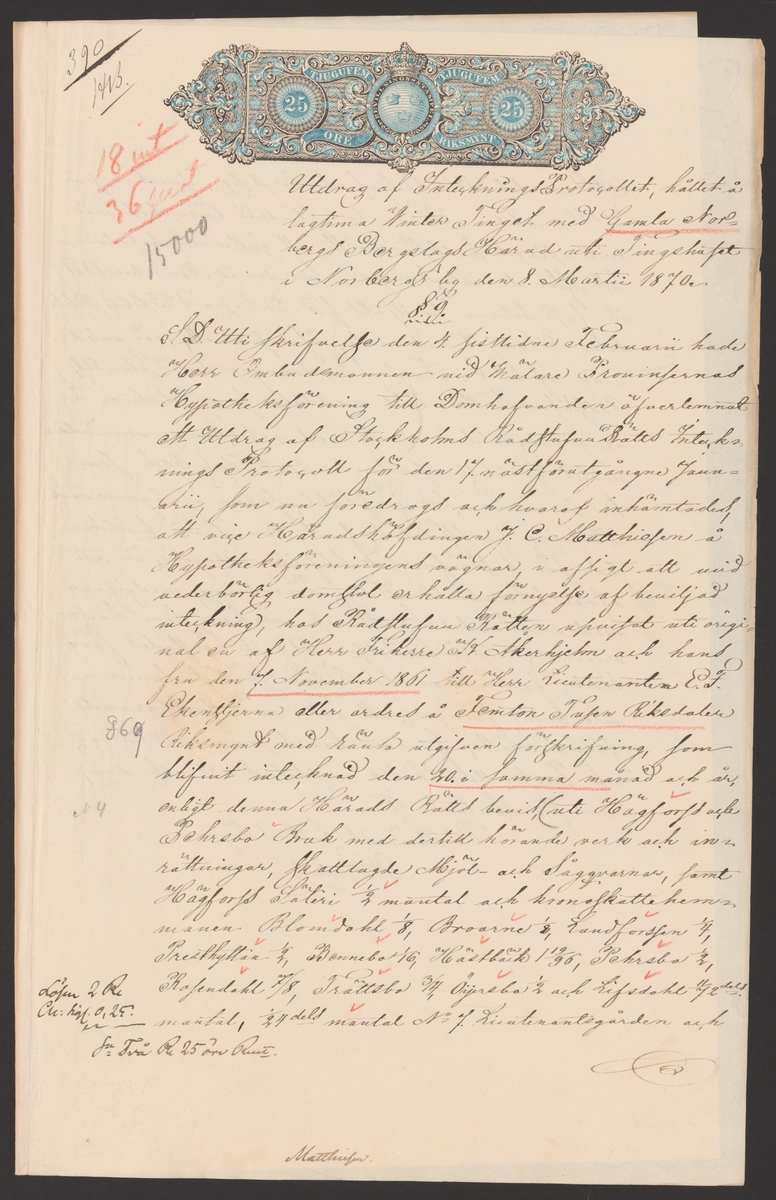 390
1413.
18 int
36
15000
TJUGUFEM TJUGUFEM
25 25
ÖRE RIKSMYNT
Utdrag af InteckningsProtocollet, hållet å
lagtima Winter Tinget med Gamla Nor-
bergs Bergslags Härad uti Tingshuset
i Norbergs by den 8. Martii 1870.
§ 9.
S. D. Uti skrifvelse den 4. sisttidne Februarii hade
Herr Ombudsmannen vid Mälare Provinsernas
Hypotheksförening till Domhafvanden öfverlemnat
ett Utdrag af Stockholms RådstufvuRätts Inteck-
nings Protocoll för den 17. nästförutgångne Janu-
arii, som nu föredrogs och hvaraf inhämtades,
att vice Häradshöfdingen J. C. Matthiesen å
Hypotheksföreningens vägnar, i afsigt att vid
vederbörlig domstol erhålla förnyelse af beviljad
inteckning, hos Rådstufvu Rätten uppvisat uti origi-
nal en af Herr Friherre Åkerhjelm och hans
fru den 7. November 1861 till Herr Lieutenanten C. F.
Ekenstjerna eller ordres å Femton Tusen Riksdaler
Riksmynt med ränta utgifven förskrifning, som
§ 69
blifvit intecknad den 20. i samma månad och år,
enligt denna Härads Rätts bevis, (uti Högfors och
N 4
Pehrsbo Bruk med dertill hörande verk och in-
rättningar, skattlagde Mjöl- och Sågqvarnar, samt
Högfors Säteri 1/2 mantal och kronoskattehem-
manen Blomdahl 1/8, Broarne 1/8, Landforssen 1/4,
Presthyttan 1/2, Bennebo 1/6, Hästbäck 1 19/96, Pehrsbo 1/2,
Rosendahl 7/8, Trättsbo 3/4, Öijersbo 1/2 och Lifsdahl dels
mantal, 1/24 dels mantal No 7. Lieutenantsgården och
Lösen 2 Rd
Ch: sig. 0,25.
Sa Två Rd 25 öre Rmt.
Matthiesen.